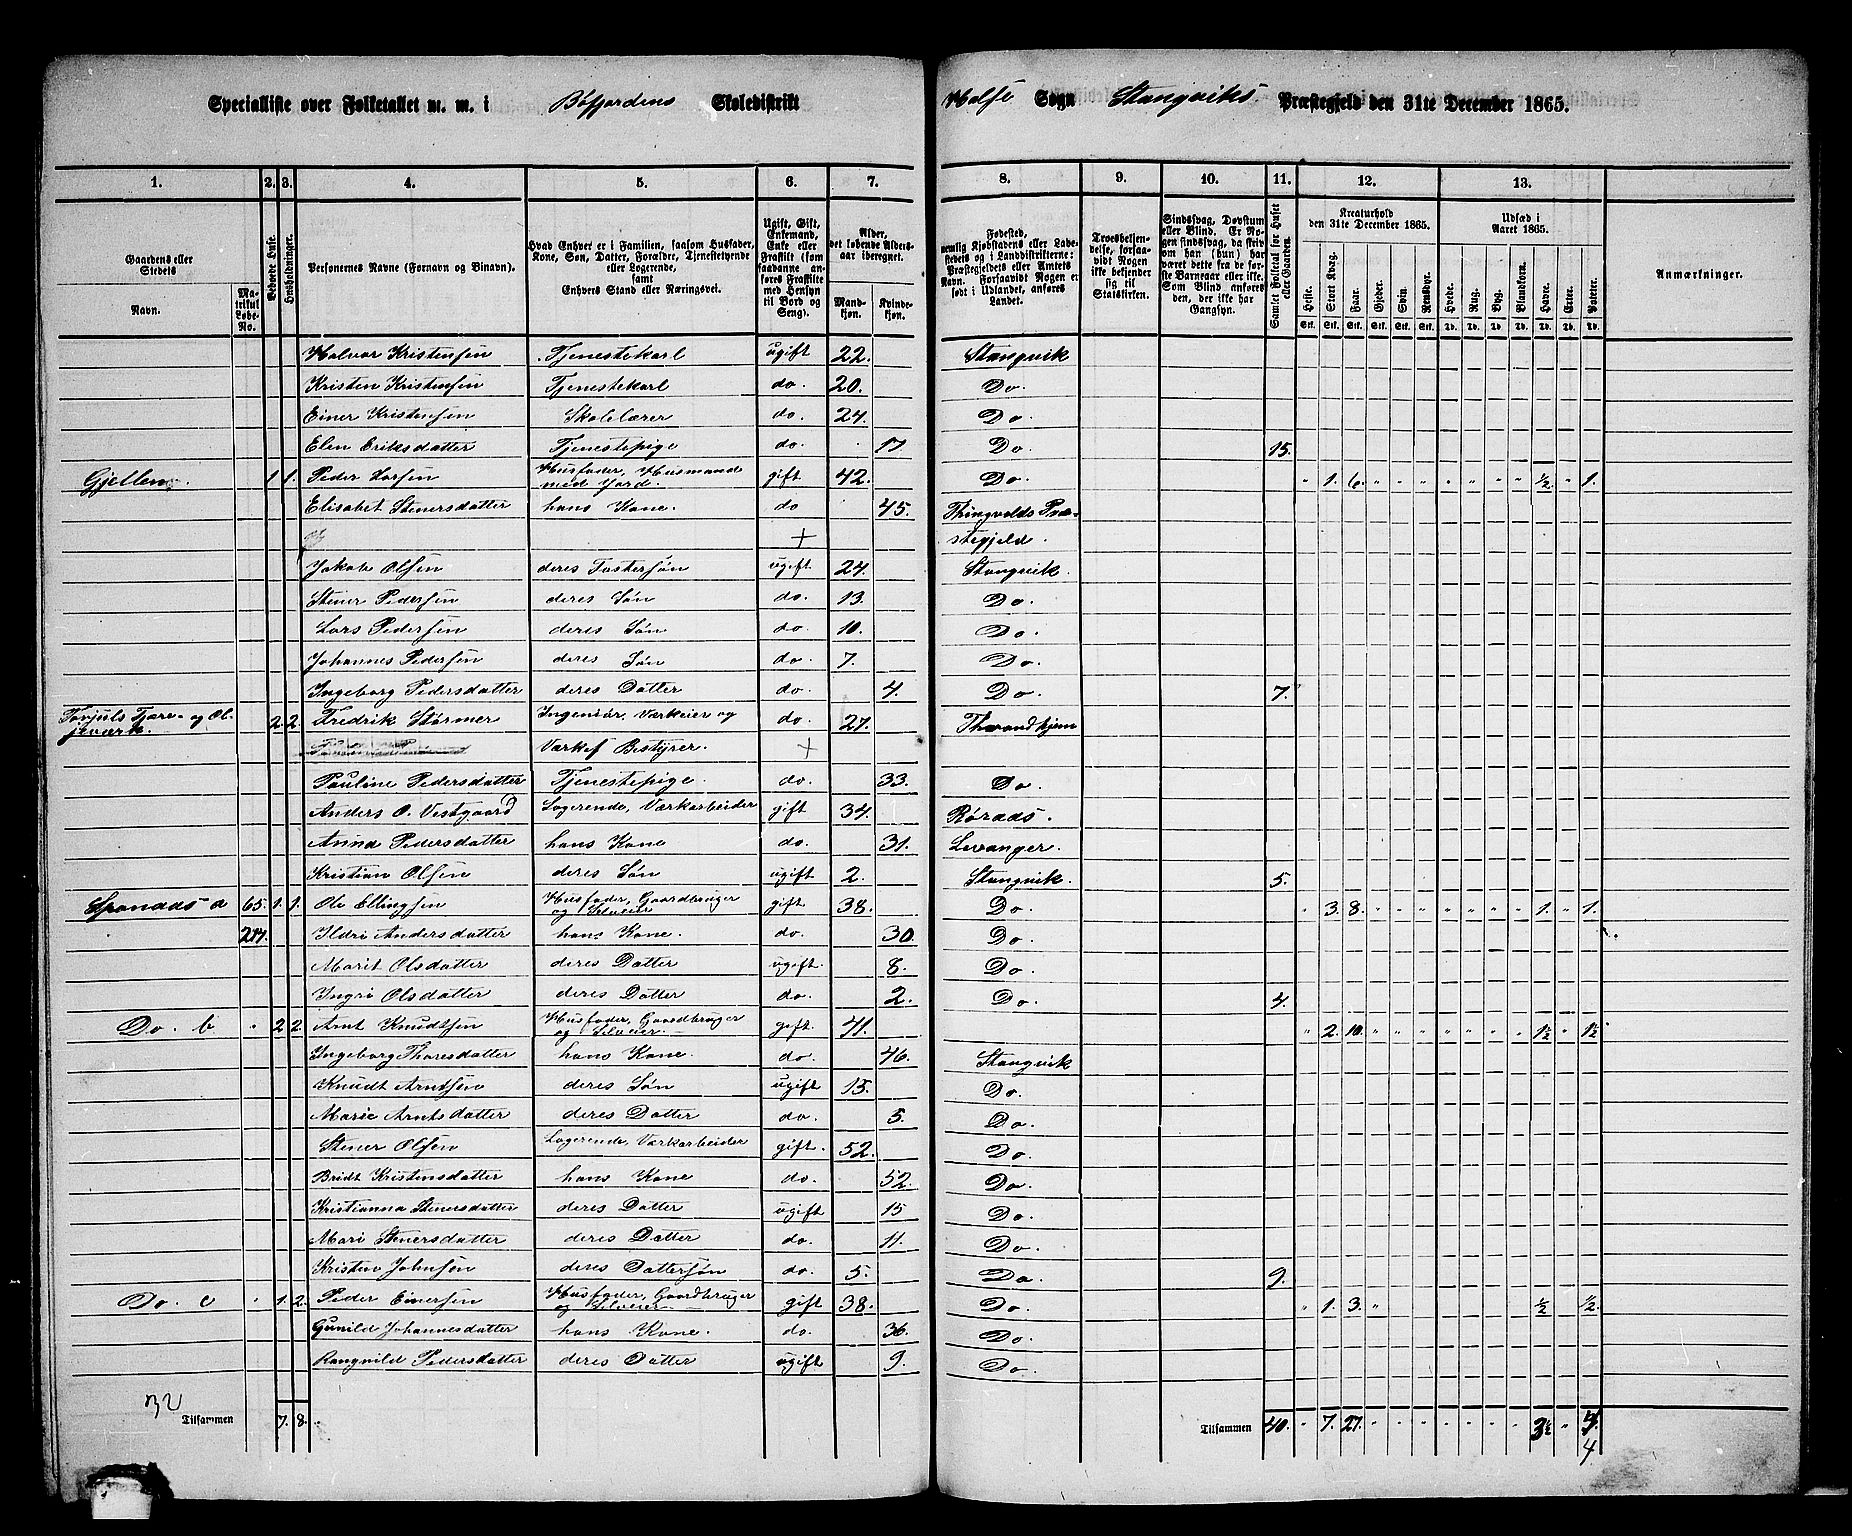 Specialliste over Folketallet m. m. i Bøfjordens Skoledistrikt
Halse Sogn Stangviks Præstegjeld den 31te December 1865.
1. 2. 3. 4. 5. 6. 7. 8. 9. 10. 11. 12. 13.
Gaardens eller Stedets
Navn.
Matrikul Løbe-No.
Beboede Huse.
Husholdninger.
Personernes Navne (Fornavn og Binavn).
Hvad Enhver er i Familien, saasom Husfader, Kone, Søn, Datter, Forældre, Tjenestetyende eller Logerende, samt Enhvers Stand eller Næringsvei.
Ugift, Gift, Enkemand, Enke eller Fraskilt (som saadanne anføres Fraskilte med Hensyn til Bord og Seng).
Alder, det løbende Aldersaar iberegnet.
Mandkjøn. Kvindekjøn.
Fødested, nemlig Kjøbstadens eller Ladestedets og i Landdistrikterne: Præstegjeldets eller Amtets Navn. Forsaavidt Nogen er født i Udlandet, anføres Landet.
Troesbekjendelse, forsaavidt Nogen ikke bekjender sig til Statskirken.
Sindssvag, Døvstum eller Blind. Er Nogen sindssvag, da skriv om han (hun) har været dette fra de første Barneaar eller ikke. Som Blind anføres den, der ikke har Gangsyn.
Samlet Folketal for Huset eller Gaarden.
Kreaturhold den 31te December 1865.
Heste. Stort Kvæg. Faar. Gjeder. Svin. Rensdyr.
Udsæd i Aaret 1865.
Hvede. Rug. Byg. Blandkorn. Havre. Erter. Poteter.
Anmærkninger.
Halvor Kristensen Tjenestekarl ugift 22. Stangvik
Kristen Kristensen Tjenestekarl do. 20. Do
Einer Kristensen Skolelærer do. 24. Do.
Elen Eriksdatter Tjenestepige do. 17 Do 15.
Gjellen. 1 1. Peder Larsen Husfader, Husmand med Jord. gift 42. Do. " 1. 6. " " " " " " " ½. " 1.
Elisabet Stenersdatter hans Kone. do 45. Thingvolds Præstegjeld.
+
Jakob Olsen deres Fostersøn ugift 24. Stangvik.
Stener Pedersen deres Søn do. 13. Do.
Lars Pedersen deres Søn do. 10. Do.
Johannes Pedersen deres Søn do. 7. Do.
Ingeborg Pedersdatter deres Datter do. 4. Do. 7.
Tjære- og Oljeværk. 2. 2. Fredrik Størmer Ingeniør, Værkeier og do. 27. Throndhjem
Værkes Bestyrer. +
Pauline Pedersdatter Tjenestepige. do. 33. Do.
Anders O. Vestgaard Logerende, Værkarbeider gift 34. Røraas.
Anna Pedersdatter hans Kone do. 31. Levanger.
Kristian Olsen deres Søn ugift 2. Stangvik. 5.
a 65. 1. 1. Ole Ellingsen Husfader, Gaardbruger og Selveier gift 38. Do. " 3. 8. " " " " " " " 1. " 1.
217. Ildri Andersdatter hans Kone do. 30. Do.
Marit Olsdatter deres Datter ugift. 8. Do.
Ingri Olsdatter deres Datter do. 2. Do. 4.
Do. b " 2 2 Arnt Knudtsen Husfader, Gaardbruger og Selveier. gift. 41. " 2. 10. " " " " " " " 1½ " 1½
Ingeborg Thoresdatter hans Kone. do. 46. Stangvik
Knudt Arntsen deres Søn ugift 15. Do.
Marie Arntsdatter deres Datter do. 5. Do.
Stener Olsen Logerende, Værkarbeider gift. 52. Do.
Bridt Kristensdatter hans Kone do. 52. Do.
Kristianna Stenersdatter deres Datter ugift 15 Do.
Mari Stenersdatter deres Datter do. 11. Do.
Kristen Johnsen deres Dattersøn do. 5. Do. 9.
Do. c " 1. 2. Peder Einersen Husfader, Gaardbruger og Selveier gift 38. Do. " 1. 3. " ½ ½.
Gunild Johannesdatter hans Kone. do. 36. Do.
Rangnild Pedersdatter deres Datter ugift 9. Do.
32
Tilsammen 7. 8.
Tilsammen 40. " 7. 27. " " " " " " " 3½ " 4.
4